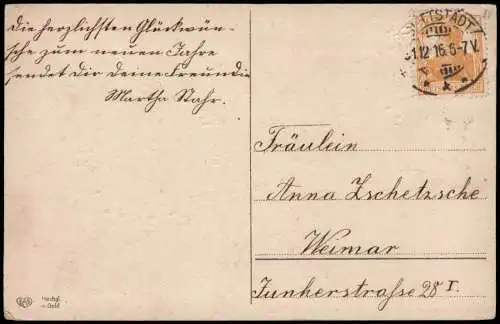 Die herzlichsten Glückwün-
sche zum neuen Jahre
sendet Dir deine Freundin
Martha Stahr.
BUTTSTÄDT
31.12.16.6-7 V.
Fräulein
Anna Zschetzsche
Weimar
Junkerstraße 28 I.